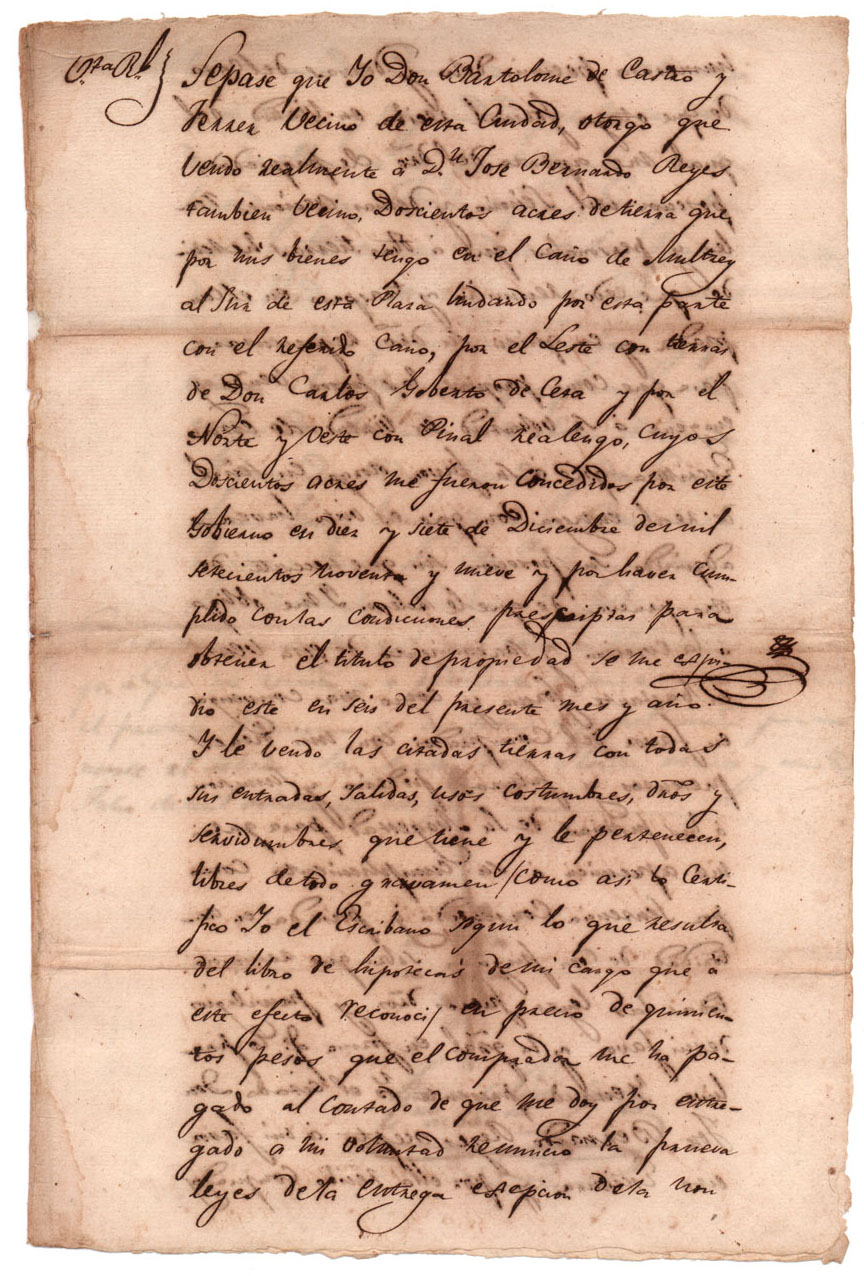 V.ta R.l
Sepase que Yo Don Bartolome de Castro y
Ferrer Vecino de esta Ciudad, otorgo que
vendo realmente à D.n Jose Bernardo Reyes
tambien Vecino, Doscientos acres de tierra que
por mis bienes tengo en el Caño de Multrey
al Sur de esta Plaza lindando por esta parte
con el referido Caño, por el Leste con tierras
de Don Carlos Goberto de Cera y por el
Norte y Oeste con Pinal realengo, cuyos
Doscientos acres me fueron concedidos por este
Gobierno en diez y siete de Diciembre de mil
setecientos noventa y nueve y por haver cum-
plido con las condiciones prescriptas para
obtener el titulo de propiedad se me espi-
dio este en seis del presente mes y año.
Y le vendo las citadas tierras con todas
sus entradas, salidas, usos costumbres, dros y
servidumbres que tiene y le pertenecen,
libres de todo gravamen /como asi lo Certi-
fico Yo el Escribano segun lo que resulta
del libro de hipotecas de mi cargo que à
este efecto reconoci/ en precio de quinien-
tos pesos que el comprador me ha pa-
gado al Contado de que me doy por entre-
gado a mi voluntad renuncio la prueva
leyes de la entrega esepcion de la non